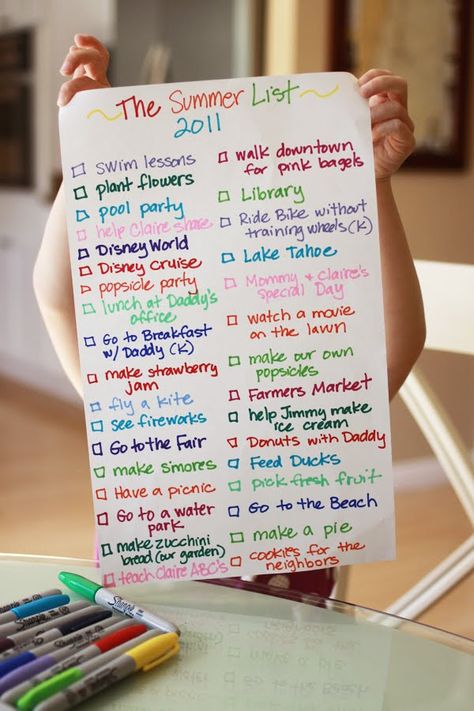 ~The Summer List~
2011
swim lessons
plant flowers
pool party
help Claire share
Disney World
Disney Cruise
popsicle party
lunch at Daddy's
office
Go to Breakfast
w/ Daddy (K)
make strawberry
jam
fly a kite
see fireworks
Go to the Fair
make s'mores
Have a picnic
Go to a water
park
make zucchini
bread (our garden)
teach Claire ABC's
walk downtown
for pink bagels
Library
Ride Bike without
training wheels (K)
Lake Tahoe
Mommy & Claire's
Special Day
watch a movie
on the lawn
make our own
popsicles
Farmers Market
help Jimmy make
ice cream
Donuts with Daddy
Feed Ducks
pick fresh fruit
Go to the Beach
make a pie
cookies for the
neighbors
Sharpie